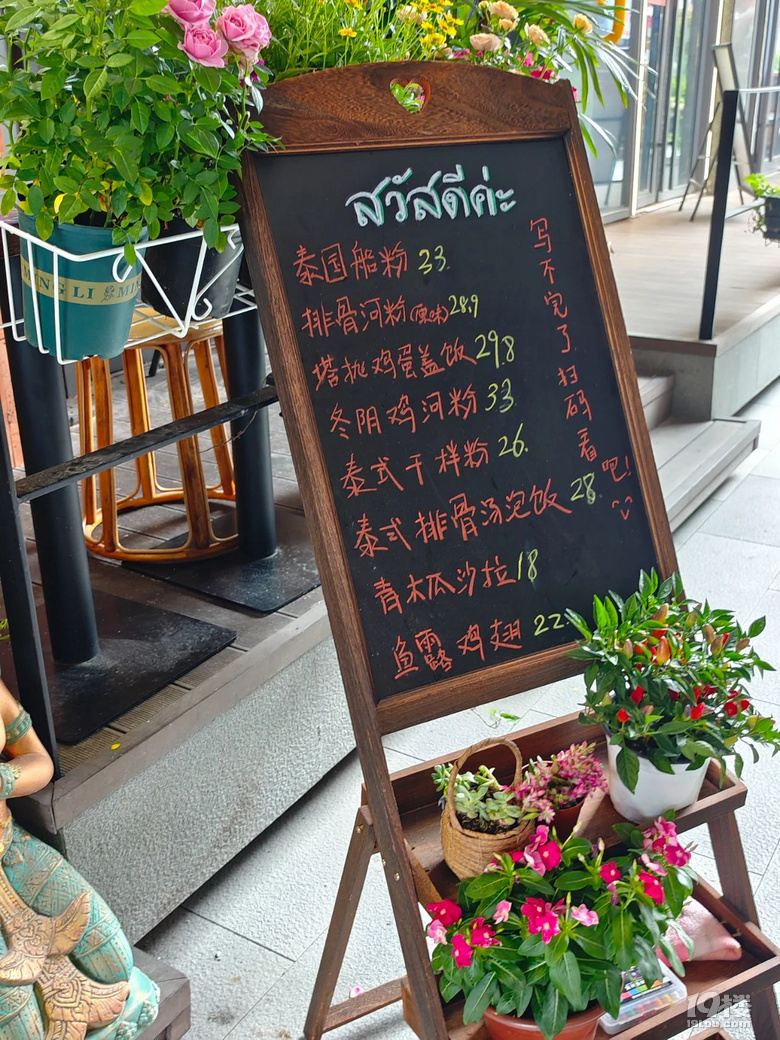 สวัสดีค่ะ
泰国船粉 33.
排骨河粉(原味)28.9
塔挑鸡蛋盖饭 29.8
冬阴鸡河粉 33
泰式干拌粉 26.
泰式排骨汤泡饭 28.
青木瓜沙拉 18
鱼露鸡翅 22.
写不完了扫码看吧!
19楼
19lou.com